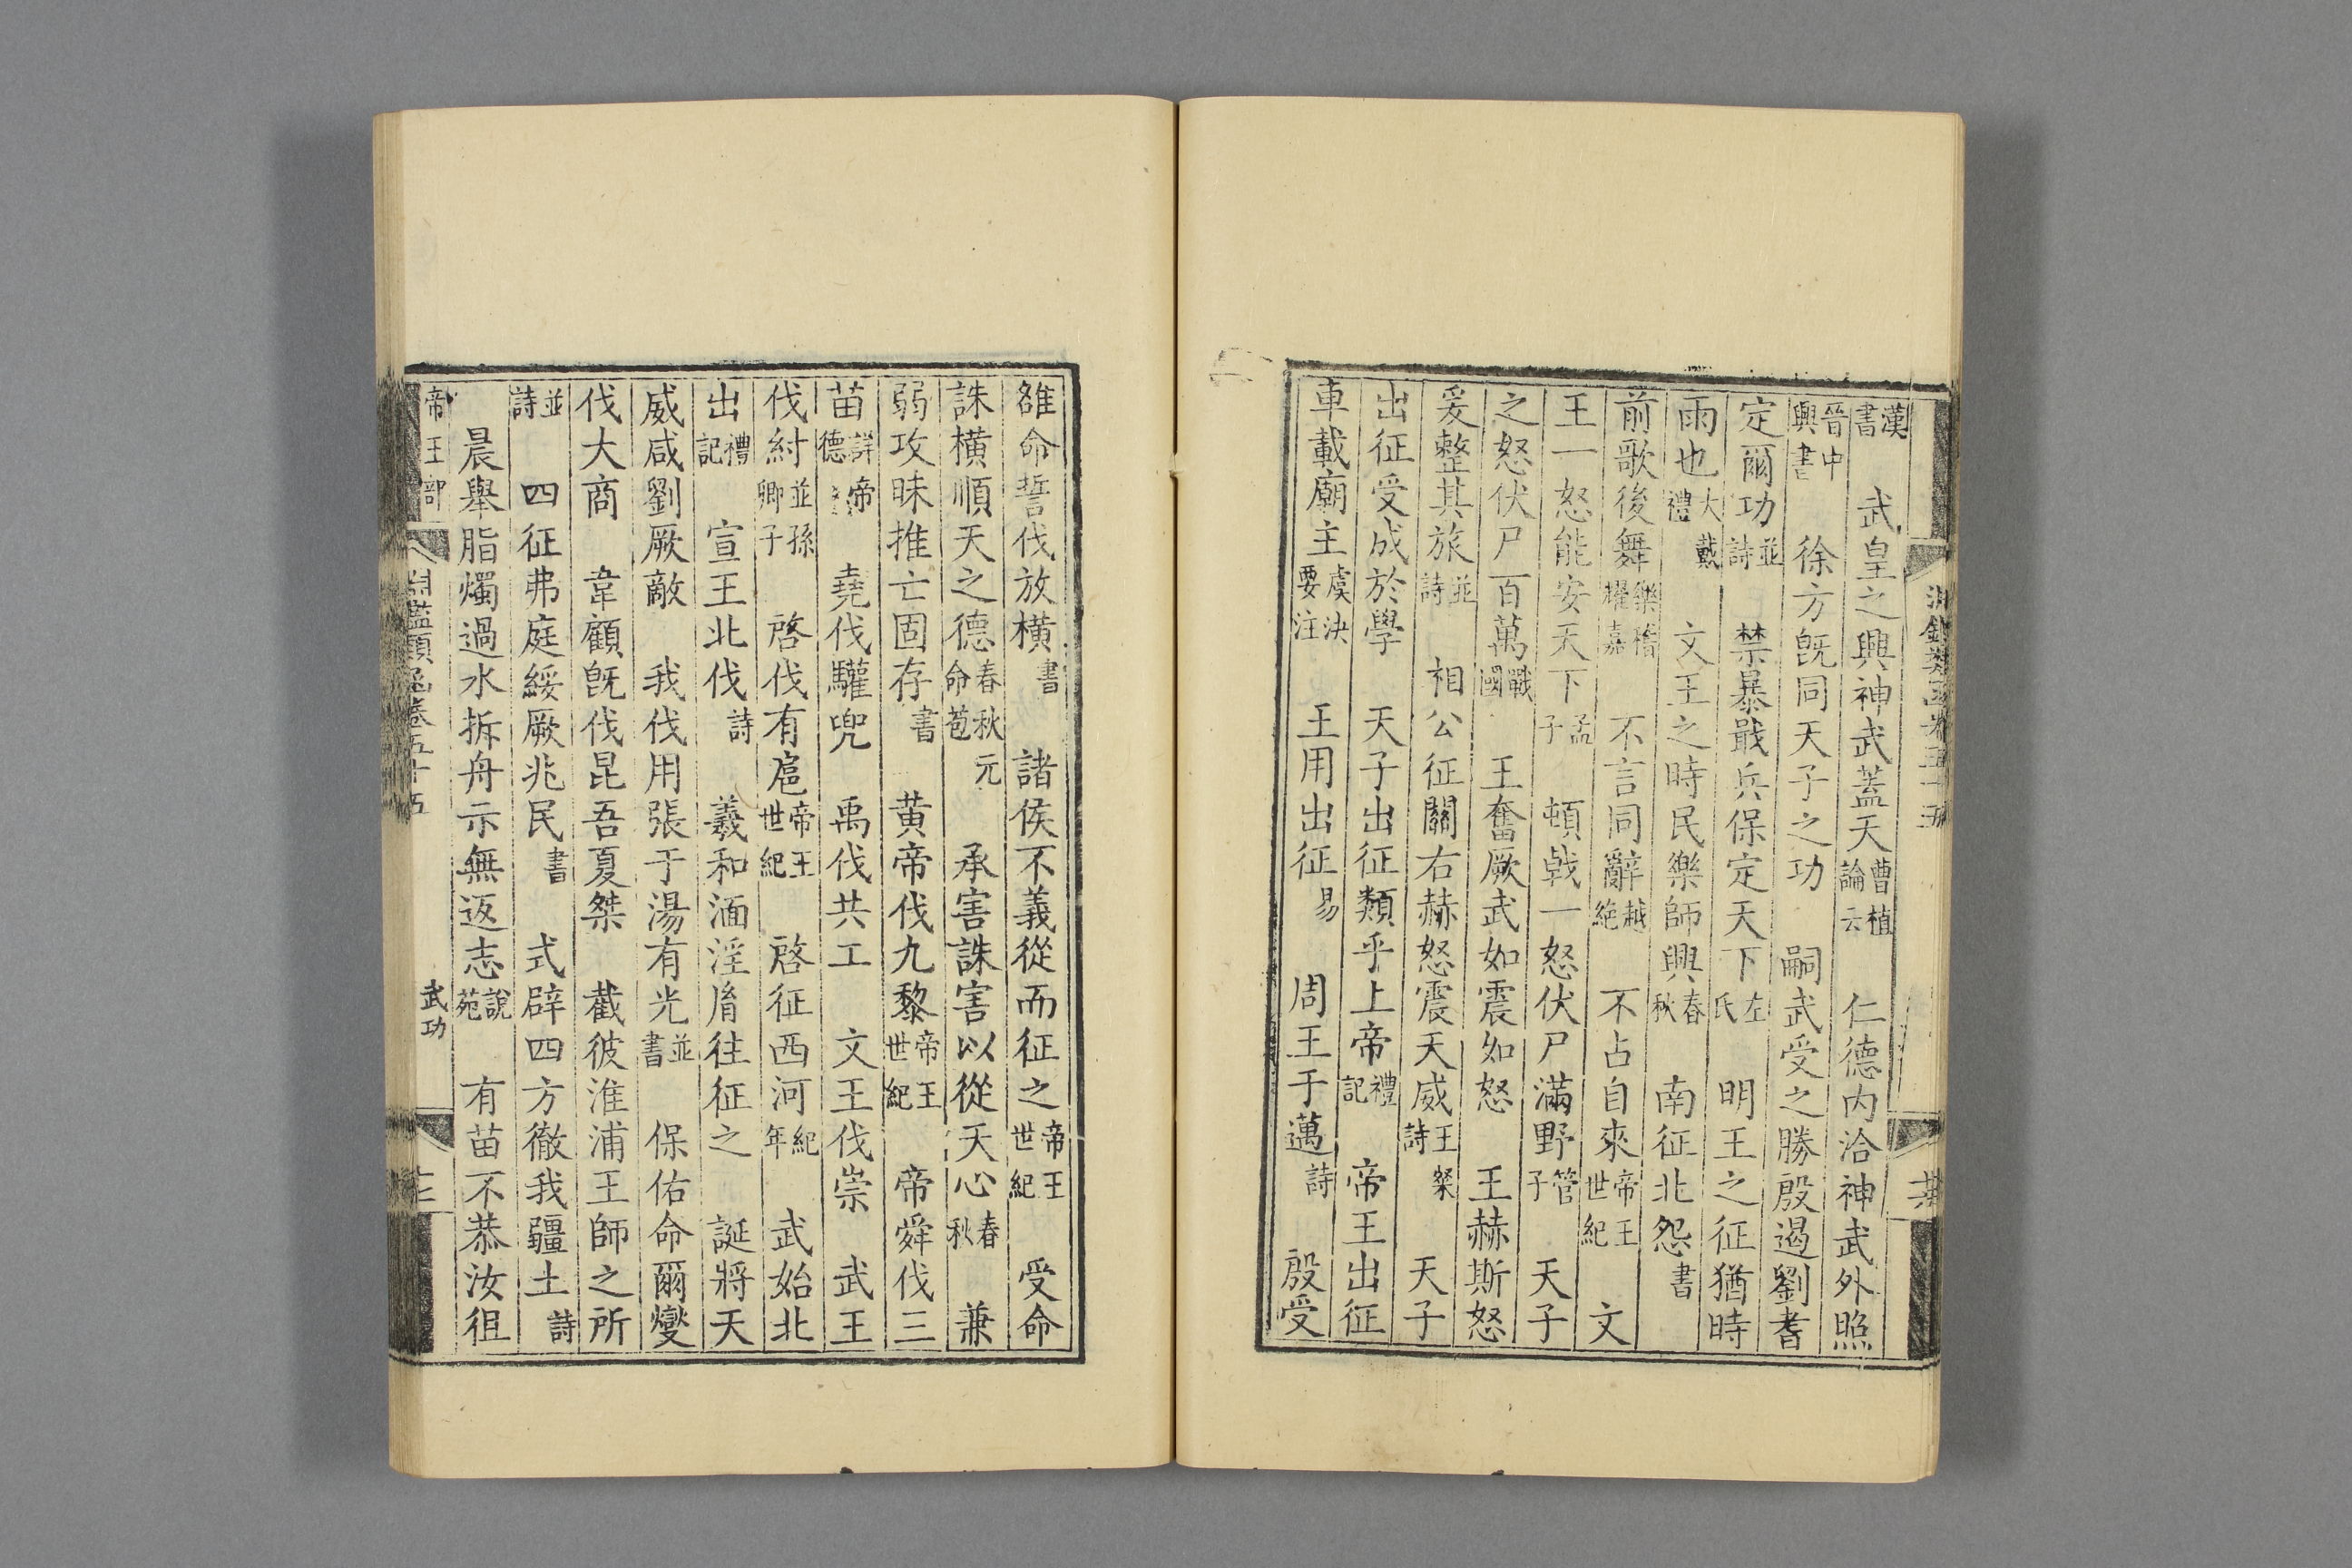 漢書　武皇之興神武蓋天曹植論云　仁德内洽神武外照
晉中興書　徐方旣同天子之功　嗣武受之勝殷遏劉耆
定爾功並詩　禁暴戢兵保定天下左氏　明王之征猶時
雨也大戴禮　文王之時民樂師興春秋　南征北怨書
前歌後舞樂稽耀嘉　不言同辭越絶　不占自來帝王世紀　文
王一怒能安天下孟子　頓戟一怒伏尸滿野管子　天子
之怒伏尸百萬戰國　王奮厥武如震如怒　王赫斯怒
爰整其旅並詩　相公征關右赫怒震天威王粲詩　天子
出征受成於學　天子出征類乎上帝禮記　帝王出征
車載廟主虞決要注　王用出征易　周王于邁詩　殷受
雒命誓伐放橫書　諸侯不義從而征之帝王世紀　受命
誅橫順天之德春秋元命苞　承害誅害以從天心春秋　兼
弱攻昧推亡固存書　黄帝伐九黎帝王世紀　帝舜伐三
苗詳帝德　堯伐驩兜　禹伐共工　文王伐崇　武王
伐紂並孫卿子　啓伐有扈帝王世紀　啓征西河紀年　武始北
出禮記　宣王北伐詩　羲和湎淫胤往征之　誕將天
威咸劉厥敵　我伐用張于湯有光並書　保佑命爾燮
伐大商　韋顧旣伐昆吾夏桀　截彼淮浦王師之所
並詩　四征弗庭綏厥兆民書　式辟四方徹我疆土詩
晨舉脂燭過水拆舟示無返志說苑　有苗不恭汝徂
帝王部　淵鑑類函卷五十五　武功